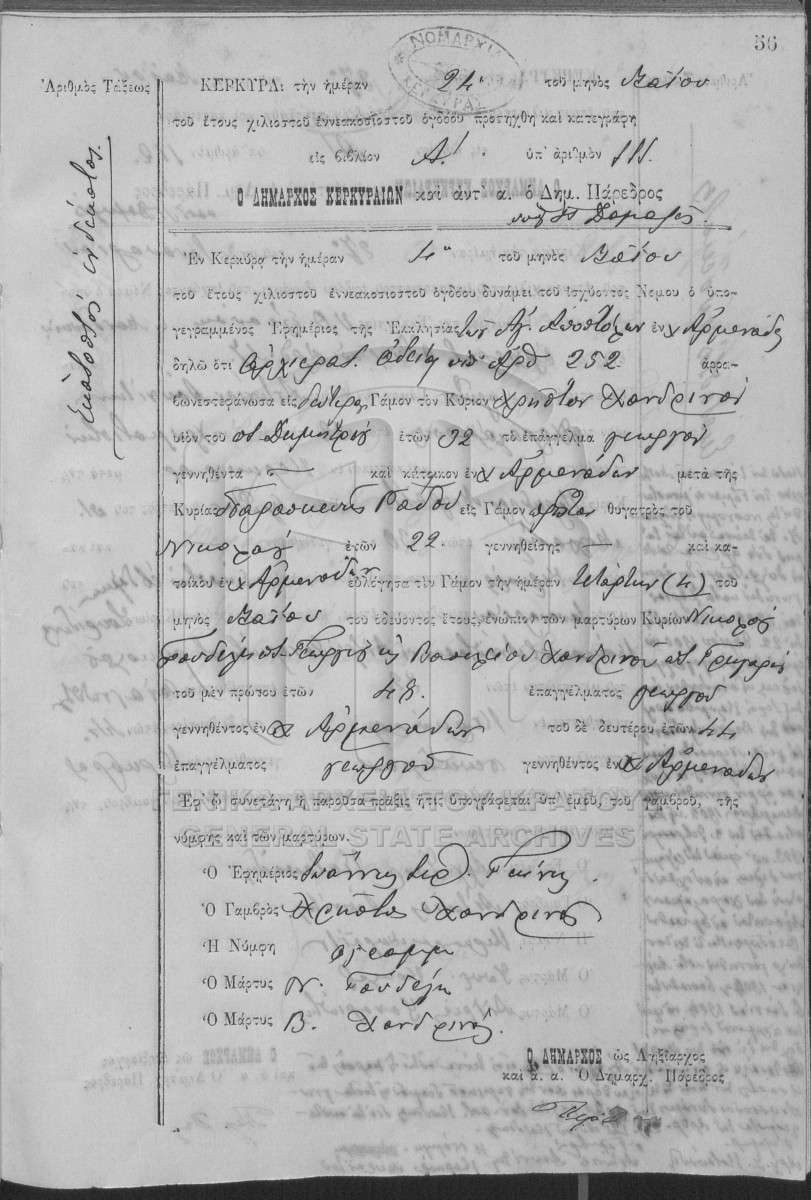 56
ΝΟΜΑΡΧΙΑ
ΚΕΡΚΥΡΑΣ
Ἀριθμὸς Τάξεως
Ἑκατοστὸς ἑνδέκατος.
ΚΕΡΚΥΡΑι τὴν ἡμέραν 24 τοῦ μηνὸς Μαΐου
τοῦ ἔτους χιλιοστοῦ ἐννεακοσιοστοῦ ὀγδόου προσήχθη καὶ κατεγράφη
εἰς βιβλίον Α! ὑπ' ἀριθμὸν 111.
Ὁ ΔΗΜΑΡΧΟΣ ΚΕΡΚΥΡΑΙΩΝ καὶ ἀντ' α. ὁ Δημ. Πάρεδρος
Ἐν Κερκύρᾳ τὴν ἡμέραν 4 τοῦ μηνὸς Μαΐου
τοῦ ἔτους χιλιοστοῦ ἐννεακοσιοστοῦ ὀγδόου δυνάμει τοῦ ἰσχύοντος Νόμου ὁ ὑπο-
γεγραμμένος Ἐφημέριος τῆς Ἐκκλησίας τῶν Ἁγ. Ἀποστόλων ἐν χ Ἀρμενάδες
δηλῶ ὅτι Ἀρχιερατ. ἀδείᾳ ὑπ' Ἀρθ 252 ἀρρα-
βωνεστεφάνωσα εἰς δεύτερον Γάμον τὸν Κύριον Χρῆστον Χονδρινὸν
υἱὸν τοῦ π. Δημητρίου ἐτῶν 32 τὸ ἐπάγγελμα γεωργοῦ
γεννηθέντα — καὶ κάτοικον ἐν χ Ἀρμενάδων μετὰ τῆς
Κυρίας Παρασκευῆς εἰς Γάμον πρῶτον θυγατρὸς τοῦ
Νικολάου ἐτῶν 22. γεννηθείσης — καὶ κα-
τοίκου ἐν χ Ἀρμενάδων εὐλόγησα τὸν Γάμον τὴν ἡμέραν τετάρτην (4) τοῦ
μηνὸς Μαΐου τοῦ ὁδεύοντος ἔτους, ἐνώπιον τῶν μαρτύρων Κυρίων Νικολάου
Γουδέλη π. Γεωργίου κ Βασιλείου Χονδρινοῦ π. Γρηγορίου
τοῦ μὲν πρώτου ἐτῶν 48. ἐπαγγέλματος γεωργοῦ
γεννηθέντος ἐν χ Ἀρμενάδων τοῦ δὲ δευτέρου ἐτῶν 44
ἐπαγγέλματος γεωργοῦ γεννηθέντος ἐν χ Ἀρμενάδων
Ἐφ' ᾧ συνετάγη ἡ παροῦσα πρᾶξις ἥτις ὑπογράφεται ὑπ' ἐμοῦ, τοῦ γαμβροῦ, τῆς
νύμφης καὶ τῶν μαρτύρων.
ΓΕΝΙΚΑ ΑΡΧΕΙΑ ΤΟΥ ΚΡΑΤΟΥΣ
GENERAL STATE ARCHIVES
Ὁ Ἐφημέριος Ἰωάννης
Ὁ Γαμβρὸς Χρῆστος Χονδρινὸς
Ἡ Νύμφη ἀγράμμ
Ὁ Μάρτυς Ν. Γουδέλη
Ὁ Μάρτυς Β. Χονδρινός.
Ὁ ΔΗΜΑΡΧΟΣ ὡς Ληξίαρχος
καὶ ἀ. α. Ὁ Δημαρχ. Πάρεδρος